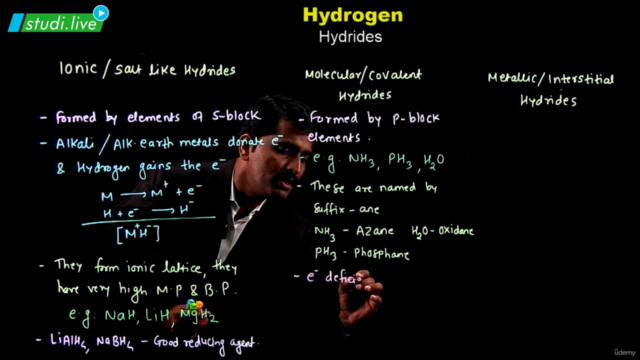 studi.live
Hydrogen
Hydrides
Ionic/Salt like Hydrides
- Formed by elements of S-block
- Alkali/Alk.earth metals donate e⁻
& Hydrogen gains the e⁻
M → M⁺ + e⁻
H + e⁻ → H⁻
[M⁺H⁻]
- They form ionic lattice, they
have very high M.P & B.P.
e.g. NaH, LiH, MgH₂
- LiAlH₄, NaBH₄ - Good reducing agent.
Molecular/Covalent
Hydrides
- Formed by P-block
elements.
- e.g. NH₃, PH₃, H₂O
- These are named by
suffix - ane
NH₃ - Azane H₂O - Oxidane
PH₃ - Phosphane
- e⁻ defic
Metallic/Interstitial
Hydrides
ûdemy